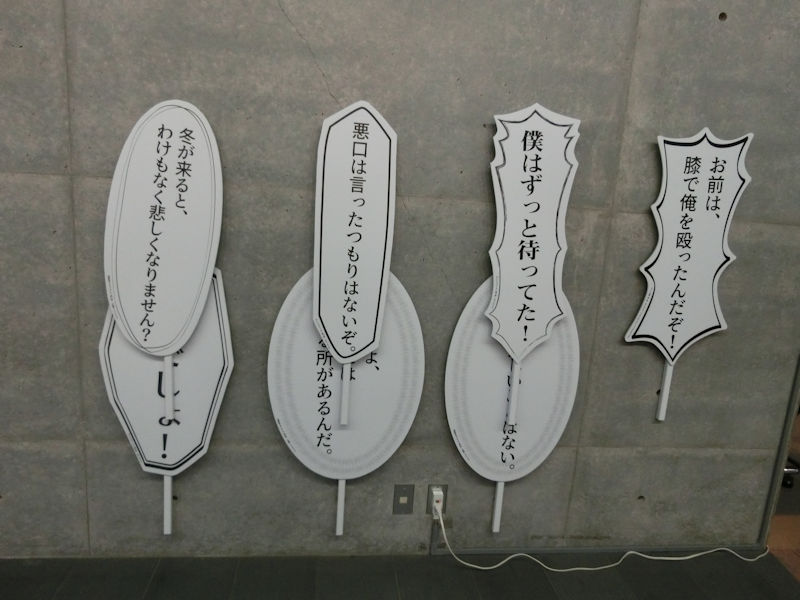 冬が来ると、
わけもなく悲しくなりません?
悪口は言ったつもりはないぞ。
僕はずっと待ってた!
お前は、
膝で俺を殴ったんだぞ!
しょ!
よ、
は
所があるんだ。
はない。